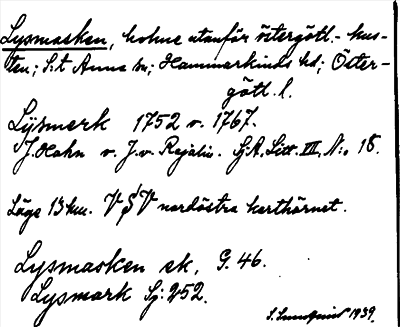 Lysmasken, holme utanför östergötl.-kus-
ten; S:t Anna sn; Hammarkinds hd; Öster-
götl. l.
Lÿsmerk 1752 o. 1767.
J. Hahn o. J. v. Rajalin. G.A. Litt. III, N:o 18.
Läge 13 km. V S V nordöstra karthörnet.
Lysmasken ek. G. 46.
Lysmark Sj: 252.
S. Lundquist 1939.